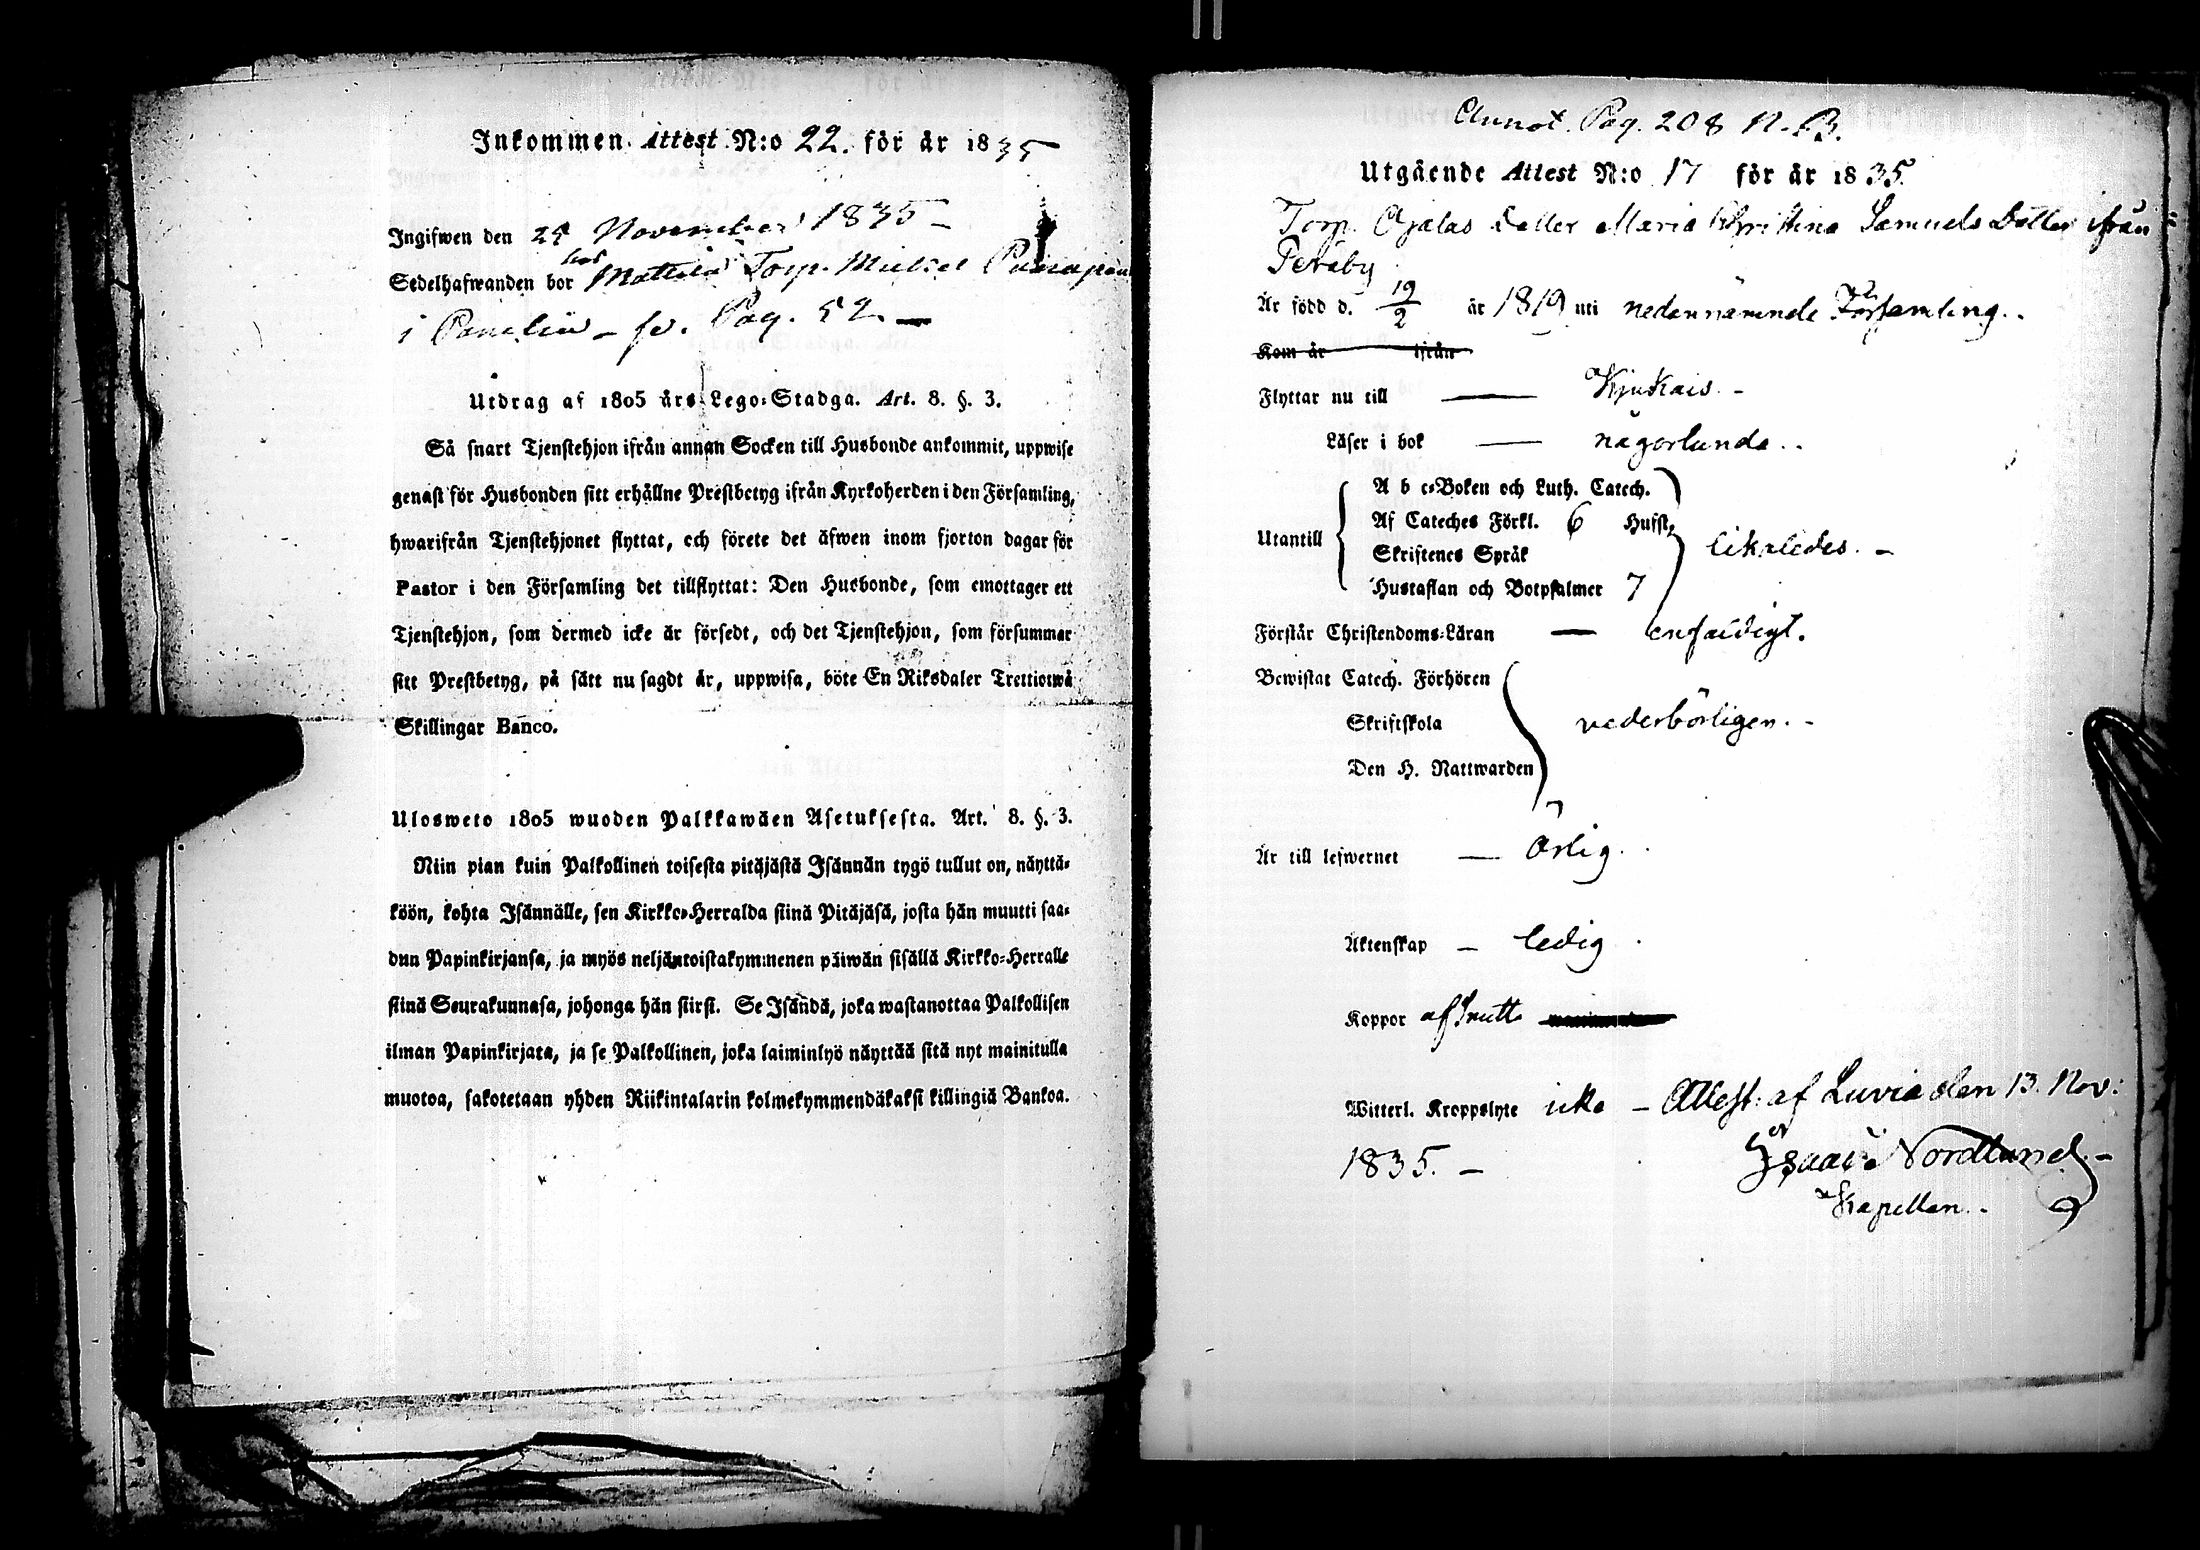 Inkommen Attest N:o 22. för år 1835
Ingifwen den 25 November 1835 –
hos
Sedelhafwanden bor Torp. Michel
i Panelia – fo. Pag. 52. –
Utdrag af 1805 års Lego-Stadga. Art. 8. §. 3.
Så snart Tjenstehjon ifrån annan Socken till Husbonde ankommit, uppwise
genast för Husbonden sitt erhållne Prestbetyg ifrån Kyrkoherden i den Församling,
hwarifrån Tjenstehjonet flyttat, och förete det äfwen inom fjorton dagar för
Pastor i den Församling det tillflyttat: Den Husbonde, som emottager ett
Tjenstehjon, som dermed icke är försedt, och det Tjenstehjon, som försummar
sitt Prestbetyg, på sätt nu sagdt är, uppwisa, böte En Riksdaler Trettiotwå
Skillingar Banco.
Ulosweto 1805 wuoden Palkkawäen Asetuksesta. Art. 8. §. 3.
Niin pian kuin Palkollinen toisesta pitäjästä Isännän tygö tullut on, näyttä-
köön, kohta Isännälle, sen Kirkko-Herralda siinä Pitäjäsä, josta hän muutti saa-
dun Papinkirjansa, ja myös neljäntoistakymmenen päiwän sisällä Kirkko-Herralle
siinä Seurakunnasa, johonga hän siirsi. Se Isändä, joka wastanottaa Palkollisen
ilman Papinkirjata, ja se Palkollinen, joka laiminlyö näyttää sitä nyt mainitulla
muotoa, sakotetaan yhden Riikintalarin kolmekymmendäkaksi killingiä Bankoa.
Annot. Pag. 208 N. B.
Utgående Attest N:o 17 för år 1835.
Torp. Ojalas Dotter Maria Christina Samuels Dotter ifrån
Peräby
Är född d. 19/2 år 1819 uti nedannämnde Församling.
Kom år ifrån
Flyttar nu till — Kjukais. –
Läser i bok — någorlunda.
A b c-Boken och Luth. Catech.
Af Cateches Förkl. 6 Hufst.
Utantill likaledes. –
Skriftenes Språk
Hustaflan och Botpsalmer 7
Förstår Christendoms-Läran — enfaldigt.
Bewistat Catech. Förhören
Skriftskola vederbörligen. –
Den H. Nattwarden
Är till lefwernet — Ärlig.
Äktenskap – ledig.
Koppor
Witterl. Kroppslyte icke – Attest. af Luvia den 13. Nov:
1835. –
Isaac Nordlund. –
Kapellan. –